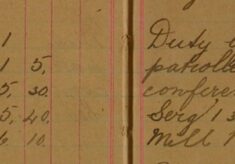 1
1 5.
5. 30.
5. 40.
6 10.
Duty
patrolle
confere
Serg' 13
Mill